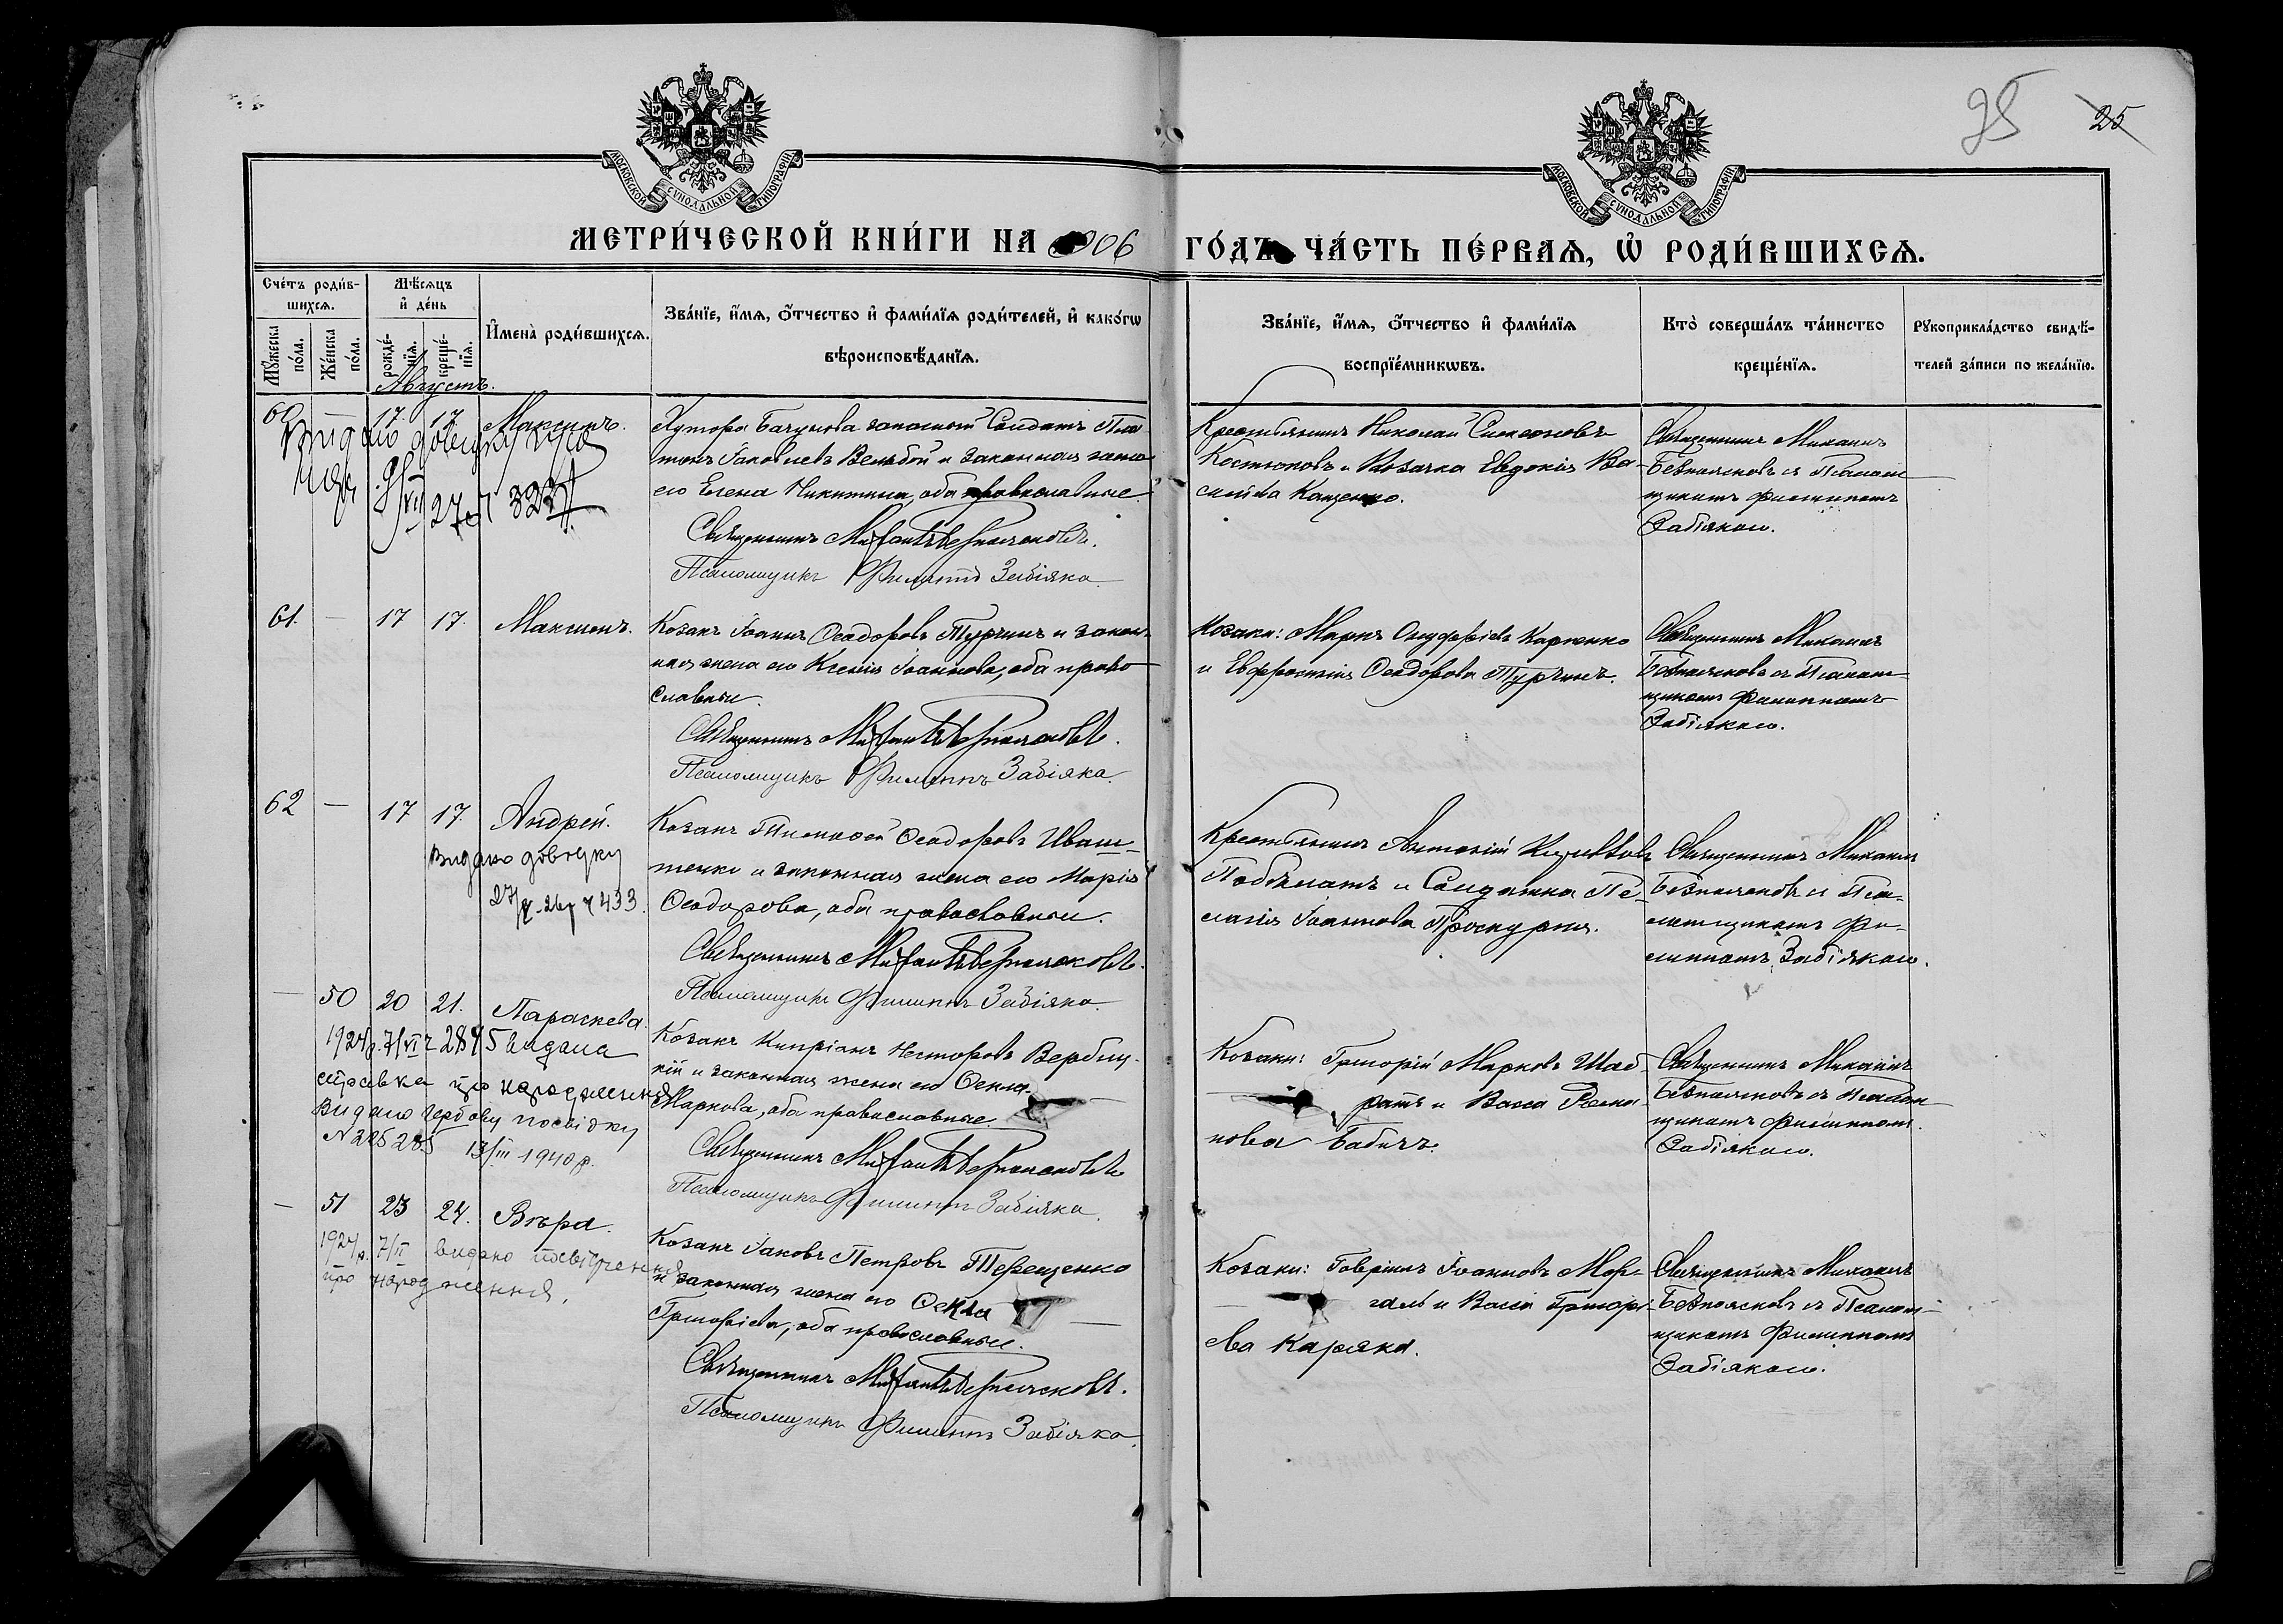 25 25
МОСКОВСКОЙ СѴНОДАЛЬНОЙ ТИПОГРАФІИ
МОСКОВСКОЙ СѴНОДАЛЬНОЙ ТИПОГРАФІИ
МЕТРИ́ЧЕСКОЙ КНИ́ГИ НА 1906 ГО́ДЪ ЧА́СТЬ ПЕ́РВАѦ, Ѡ҆ РОДИ́ВШИХСѦ.
Сче́тъ роди́в-
шихсѧ.
Мꙋ́жеска по́ла.
Же́нска по́ла.
Мѣ́сѧцъ
и҆ де́нь
рожде́-
нїѧ.
креще́-
нїѧ.
И҆мена̀ роди́вшихсѧ.
Зва́нїе, и҆́мѧ, ѻ҆́тчество и҆ фами́лїѧ роди́телей, и҆ како́гѡ
вѣроисповѣ́данїѧ.
Зва́нїе, и҆́мѧ, ѻ҆́тчество и҆ фами́лїѧ
воспрїе́мникѡвъ.
Кто̀ соверша́лъ та́инство
креще́нїѧ.
Рꙋкоприкла́дство свидѣ́-
телей за́писи по жела́нїю.
Августъ.
60 — 17. 17. Максимъ.
Видано довідку
27 323
Хутора Бачунова запасной Солдатъ Пла-
тонъ Іаковлевъ Вельбой и законная жена
его Елена Никитина, оба православные
Священникъ Михаилъ Безпоясковъ.
Псаломщикъ Филиппъ Забіяка.
Крестьянинъ Николай Симеоновъ
Костюковъ и Козачка Евдокія Ва-
сильева Кащенко.
Священникъ Михаилъ
Безпоясковъ съ Псалом-
щикомъ Филиппомъ
Забіякою.
61. — 17 17. Максимъ.
Козакъ Іоаннъ Ѳеодоровъ Турчинъ и закон-
ная жена его Ксенія Іоаннова, оба право-
славные.
Священникъ Михаилъ Безпоясковъ.
Псаломщикъ Филиппъ Забіяка.
Козаки: Маркъ Онуфріевъ Карпенко
и Евфросинія Ѳеодорова Турчинъ.
Священникъ Михаилъ
Безпоясковъ съ Псалом-
щикомъ Филиппомъ
Забіякою.
62 — 17 17. Андрей.
Видано довідку
433.
Козакъ Тимофей Ѳеодоровъ Иваш-
тенко и законная жена его Марія
Ѳеодорова, оба православные.
Священникъ Михаилъ Безпоясковъ.
Псаломщикъ Филиппъ Забіяка.
Крестьянинъ Антоній
и Солдатка Пе-
лагія Іоаннова Проскурня.
Священникъ Михаилъ
Безпоясковъ съ Пса-
ломщикомъ Фи-
липпомъ Забіякою.
— 50 20 21. Параскева.
1924р. 7/VI 2845 видана
справка про народження
Видано гербову посвідку
N 225285 13/III 1940р.
Козакъ Кипріанъ Несторовъ Вербиц-
кій и законная жена его Ѳекла
Маркова, оба православные.
Священникъ Михаилъ Безпоясковъ
Псаломщикъ Филиппъ Забіяка.
Козаки: Григорій Марковъ Шаб-
ратъ и Васса Рома-
нова Бабичъ.
Священникъ Михаилъ
Безпоясковъ съ Псалом-
щикомъ Филиппомъ
Забіякою.
— 51 23 24. Вѣра.
1924р. 7/II видано посвідчення
про народження.
Козакъ Іаковъ Петровъ Терещенко
и законная жена его Ѳекла
Григоріева, оба православные.
Священникъ Михаилъ Безпоясковъ.
Псаломщикъ Филиппъ Забіяка.
Козаки: Гавріилъ Іоанновъ Мор-
галь и Васса Григорі-
ева Каряка.
Священникъ Михаилъ
Безпоясковъ съ Псалом-
щикомъ Филиппомъ
Забіякою.